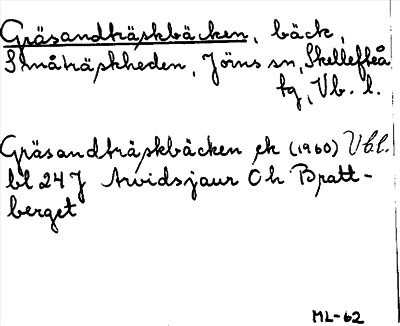 Gräsandträskbäcken, bäck,
Småträskheden, Jörns sn, Skellefteå
tg, Vb. l.
Gräsandträskbäcken ek (1960) Vb.l.
bl 24 J Arvidsjaur Ö h Bratt-
berget
ML-62